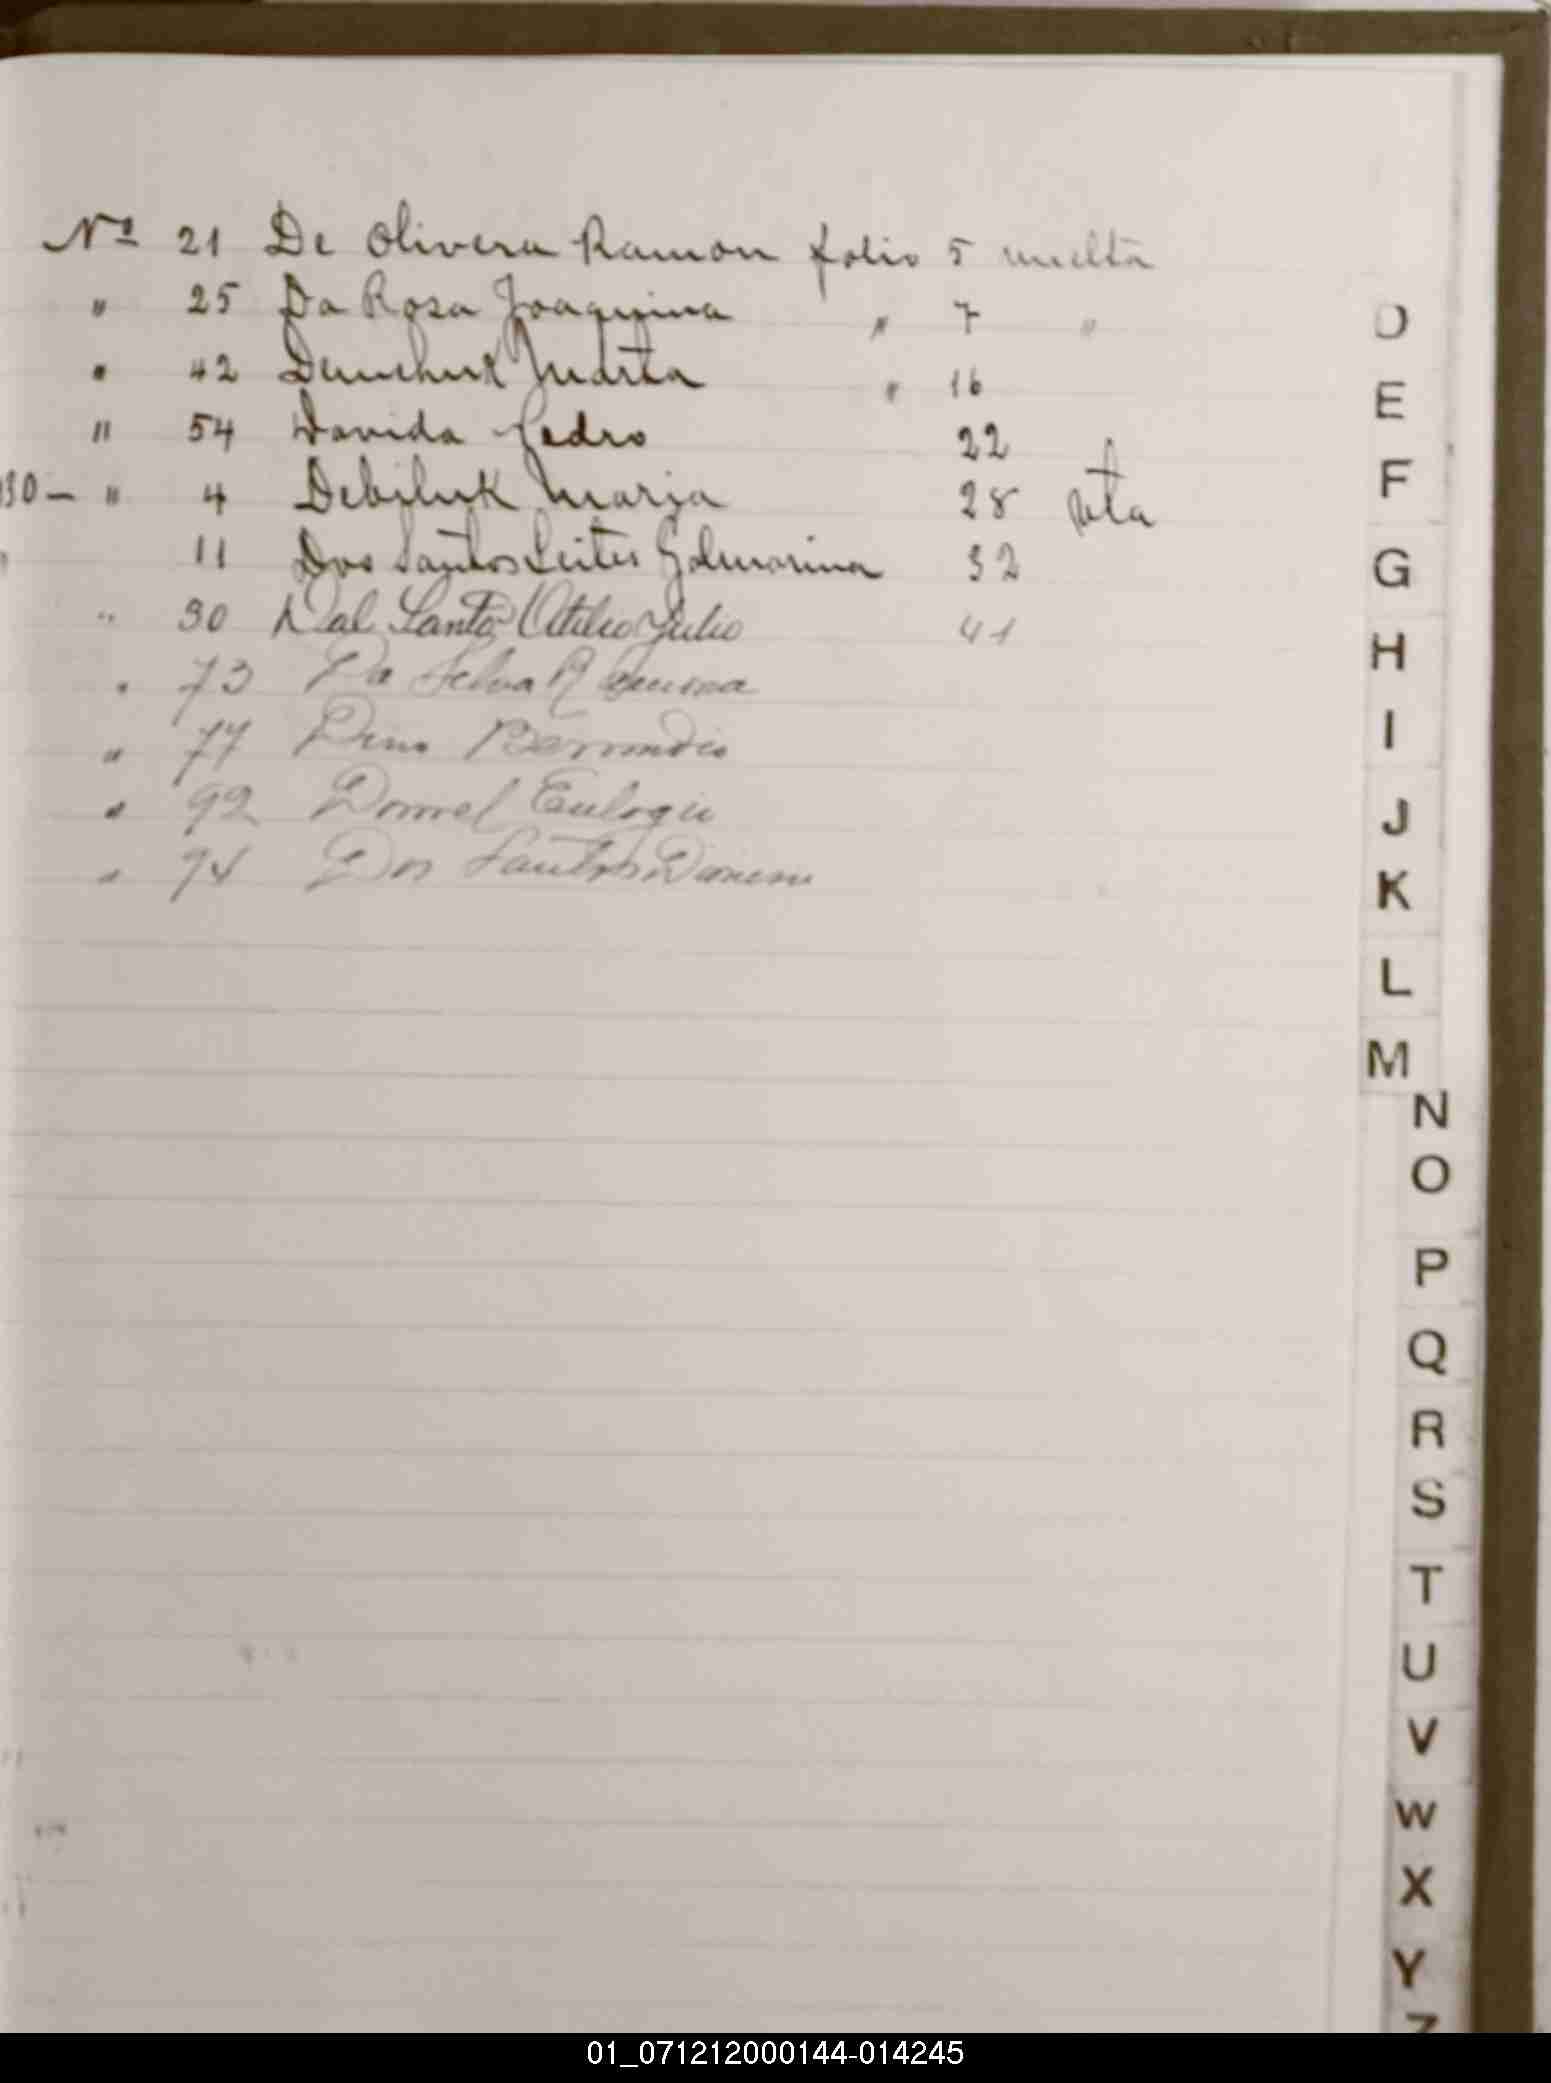 Nº 21 De Olivera Ramon folio 5 vuelta
" 25 Da Rosa Joaquina " 7 "
" 42 Demchuk Marta " 16
" 54 Davida Pedro 22
930 — " 4 Debiluk Maria 28 vta
11 Dos Santos Leites 32
" 30 Dal Santo Otilio Julio 41
" 73 Da Silva Ramona
" 77
" 92 Eulogio
" 94 Dos Santos
D
E
F
G
H
I
J
K
L
M
N
O
P
Q
R
S
T
U
V
W
X
Y
Z
01_071212000144-014245